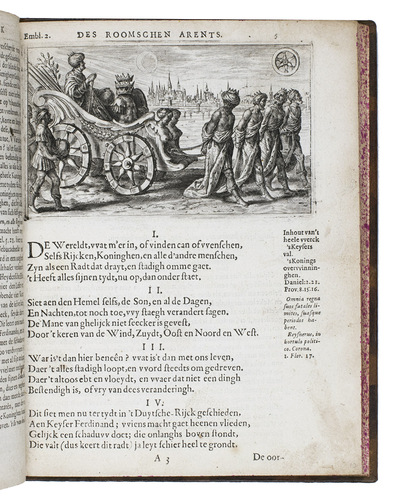 Embl. 2.
DES ROOMSCHEN ARENTS.
5
I.
DE Wereldt, vvat m'er in, of vinden can of vvenschen,
Selfs Rijcken, Koninghen, en alle d'andre menschen,
Zyn als een Radt dat drayt, en stadigh omme gaet.
't Heeft alles sijnen tydt, nu op, dan onder staet.
II.
Siet aen den Hemel selfs, de Son, en al de Dagen,
En Nachten, tot noch toe, vvy staegh verandert sagen.
De Mane van ghelijck niet seecker is gevest,
Door 't keren van de Wind, Zuydt, Oost en Noord en West.
III.
War is't dan hier beneên? vvat is't dan met ons leven,
Daer 't alles stadigh loopt, en vvord steeds om gedreven.
Daer 't altoos ebt en vloeydt, en vvaer dat niet een dingh
Bestendigh is, of vry van dees veranderingh.
IV.
Dit siet men nu ter tydt in 't Duytsche-Rijck geschieden,
Aen Keyser Ferdinand; vviens macht gaet heenen vlieden,
Gelijck een schaduvv doet; die onlanghs boven stondt,
Die valt (dus keert dit radt) ja leyt schier heel te grondt.
A 3
De oor-
Inhout van's
heele vverck
'sKeysers
val.
'sKonings
overvvinnin-
ghen.
Daniel. 2. 21.
Prov. 8. 15. 16.
Omnia regna
suos fatales li-
mites, suasque
periodos ha-
bent.
Corona.
1. Flor. 17.